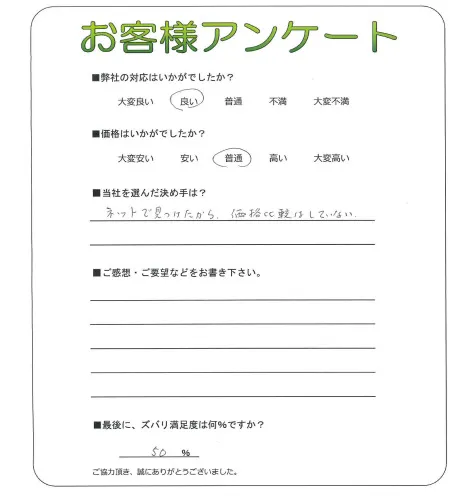 お客様アンケート
■弊社の対応はいかがでしたか？
大変良い 良い 普通 不満 大変不満
■価格はいかがでしたか？
大変安い 安い 普通 高い 大変高い
■当社を選んだ決め手は？
ネットで見つけたから、価格比較はしていない。
■ご感想・ご要望などをお書き下さい。
■最後に、ズバリ満足度は何%ですか？
50 %
ご協力頂き、誠にありがとうございました。